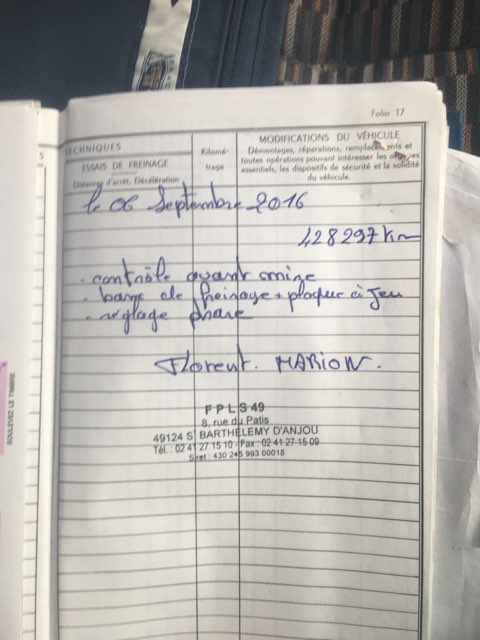 Folio 17
TECHNIQUES
ESSAIS DE FREINAGE
Distances d'arrêt, Décélération
Kilomé-
trage
MODIFICATIONS DU VÉHICULE
Démontages, réparations, remplacements et
toutes opérations pouvant intéresser les organes
essentiels, les dispositifs de sécurité et la solidité
du véhicule.
le 06 Septembre 2016
428297 km
- contrôle avant mine
- banc de freinage + plaque à jeu
- réglage phare
Florent. MARION.
FPLS 49
8, rue du Patis
49124 St BARTHÉLEMY D'ANJOU
Tél. : 02 41 27 15 10 - Fax : 02 41 27 15 09
Siret : 430 245 993 00018
SOULEVEZ LE TIMBRE